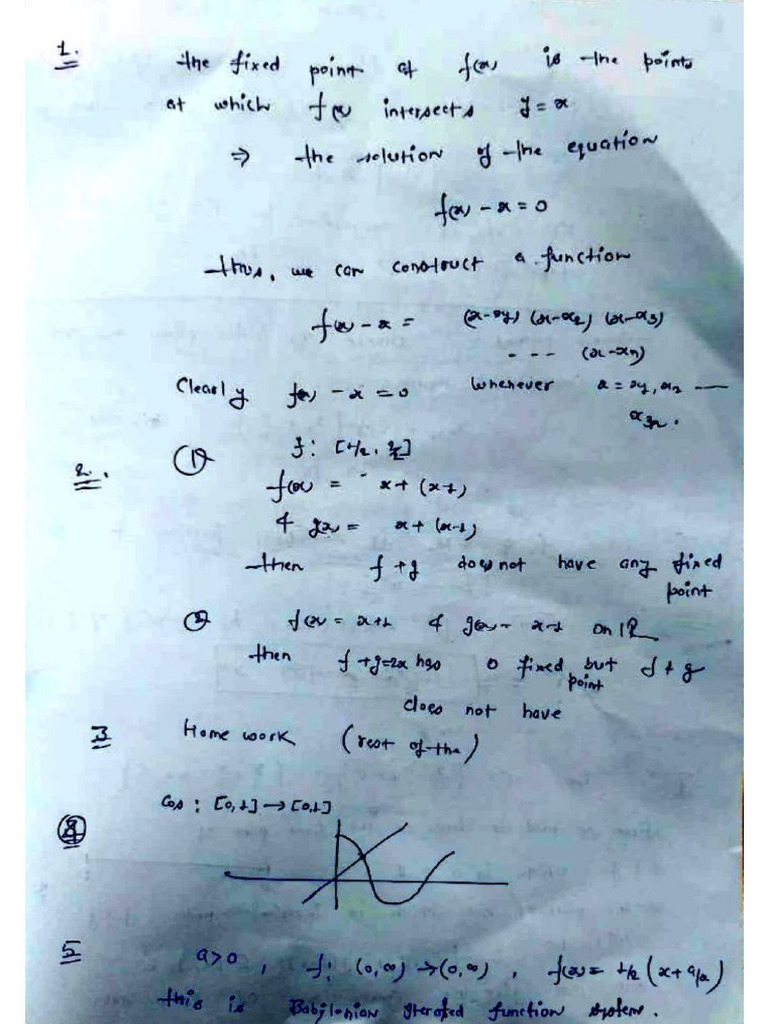 1. the fixed point of f(x) is the points
at which f(x) intersects y = x
⇒ the solution of the equation
f(x) - x = 0
thus, we can construct a function
f(x) - x = (x-x₁) (x-x₂) (x-x₃)
--- (x-xₙ)
Clearly f(x) - x = 0 whenever x = x₁, x₂ ---
2. ① f: [1/2,
f(x) = x + (x-1)
& g(x) = x + (x-1)
then f + g does not have any fixed
point
② f(x) = x+1 & g(x) = x-1 on IR
then f + g = 2x has 0 fixed point but f & g
does not have
3 Home work (rest of the)
4 Cos : [0,1] → [0,1]
5 a>0, f: (0,∞) → (0,∞), f(x) = 1/2 (x + a/x)
this is Babylonian iterated function system.